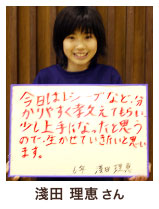 今日はレシーブなど、分
かりやすく教えてもらい、
少し上手になったと思う
ので、生かせていきたいと思い
ます。
6年 淺田 理恵
淺田 理恵 さん